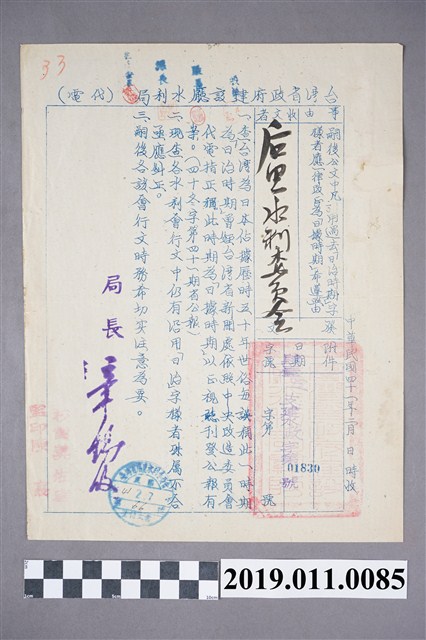 33
台灣省政府建設廳水利局（代電）
事由
嗣後公文中凡引用過去「日治時期」字樣者應一律改為「日據時期」希遵照由
收文者
后里水利委員會
附件
日期
字第 號
01830
中華民國四十一年 月 日 時收
一、查台灣為日本佔據歷時五十年世俗每誤稱此一時期為「日治時期」曾經台灣省新聞處依照中央改造委員會代電指正稱「此時期為「日據時期」以正視聽」刊登公報有案。（四十冬字第四十一期省公報）
二、現查各水利會行文中仍有沿用「日治」字樣者殊屬不合亟應糾正。
三、嗣後各該會行文時務希切实注意為要。
局長
章錫綬
41.2.7
2cm
5cm
10cm
2019.011.0085